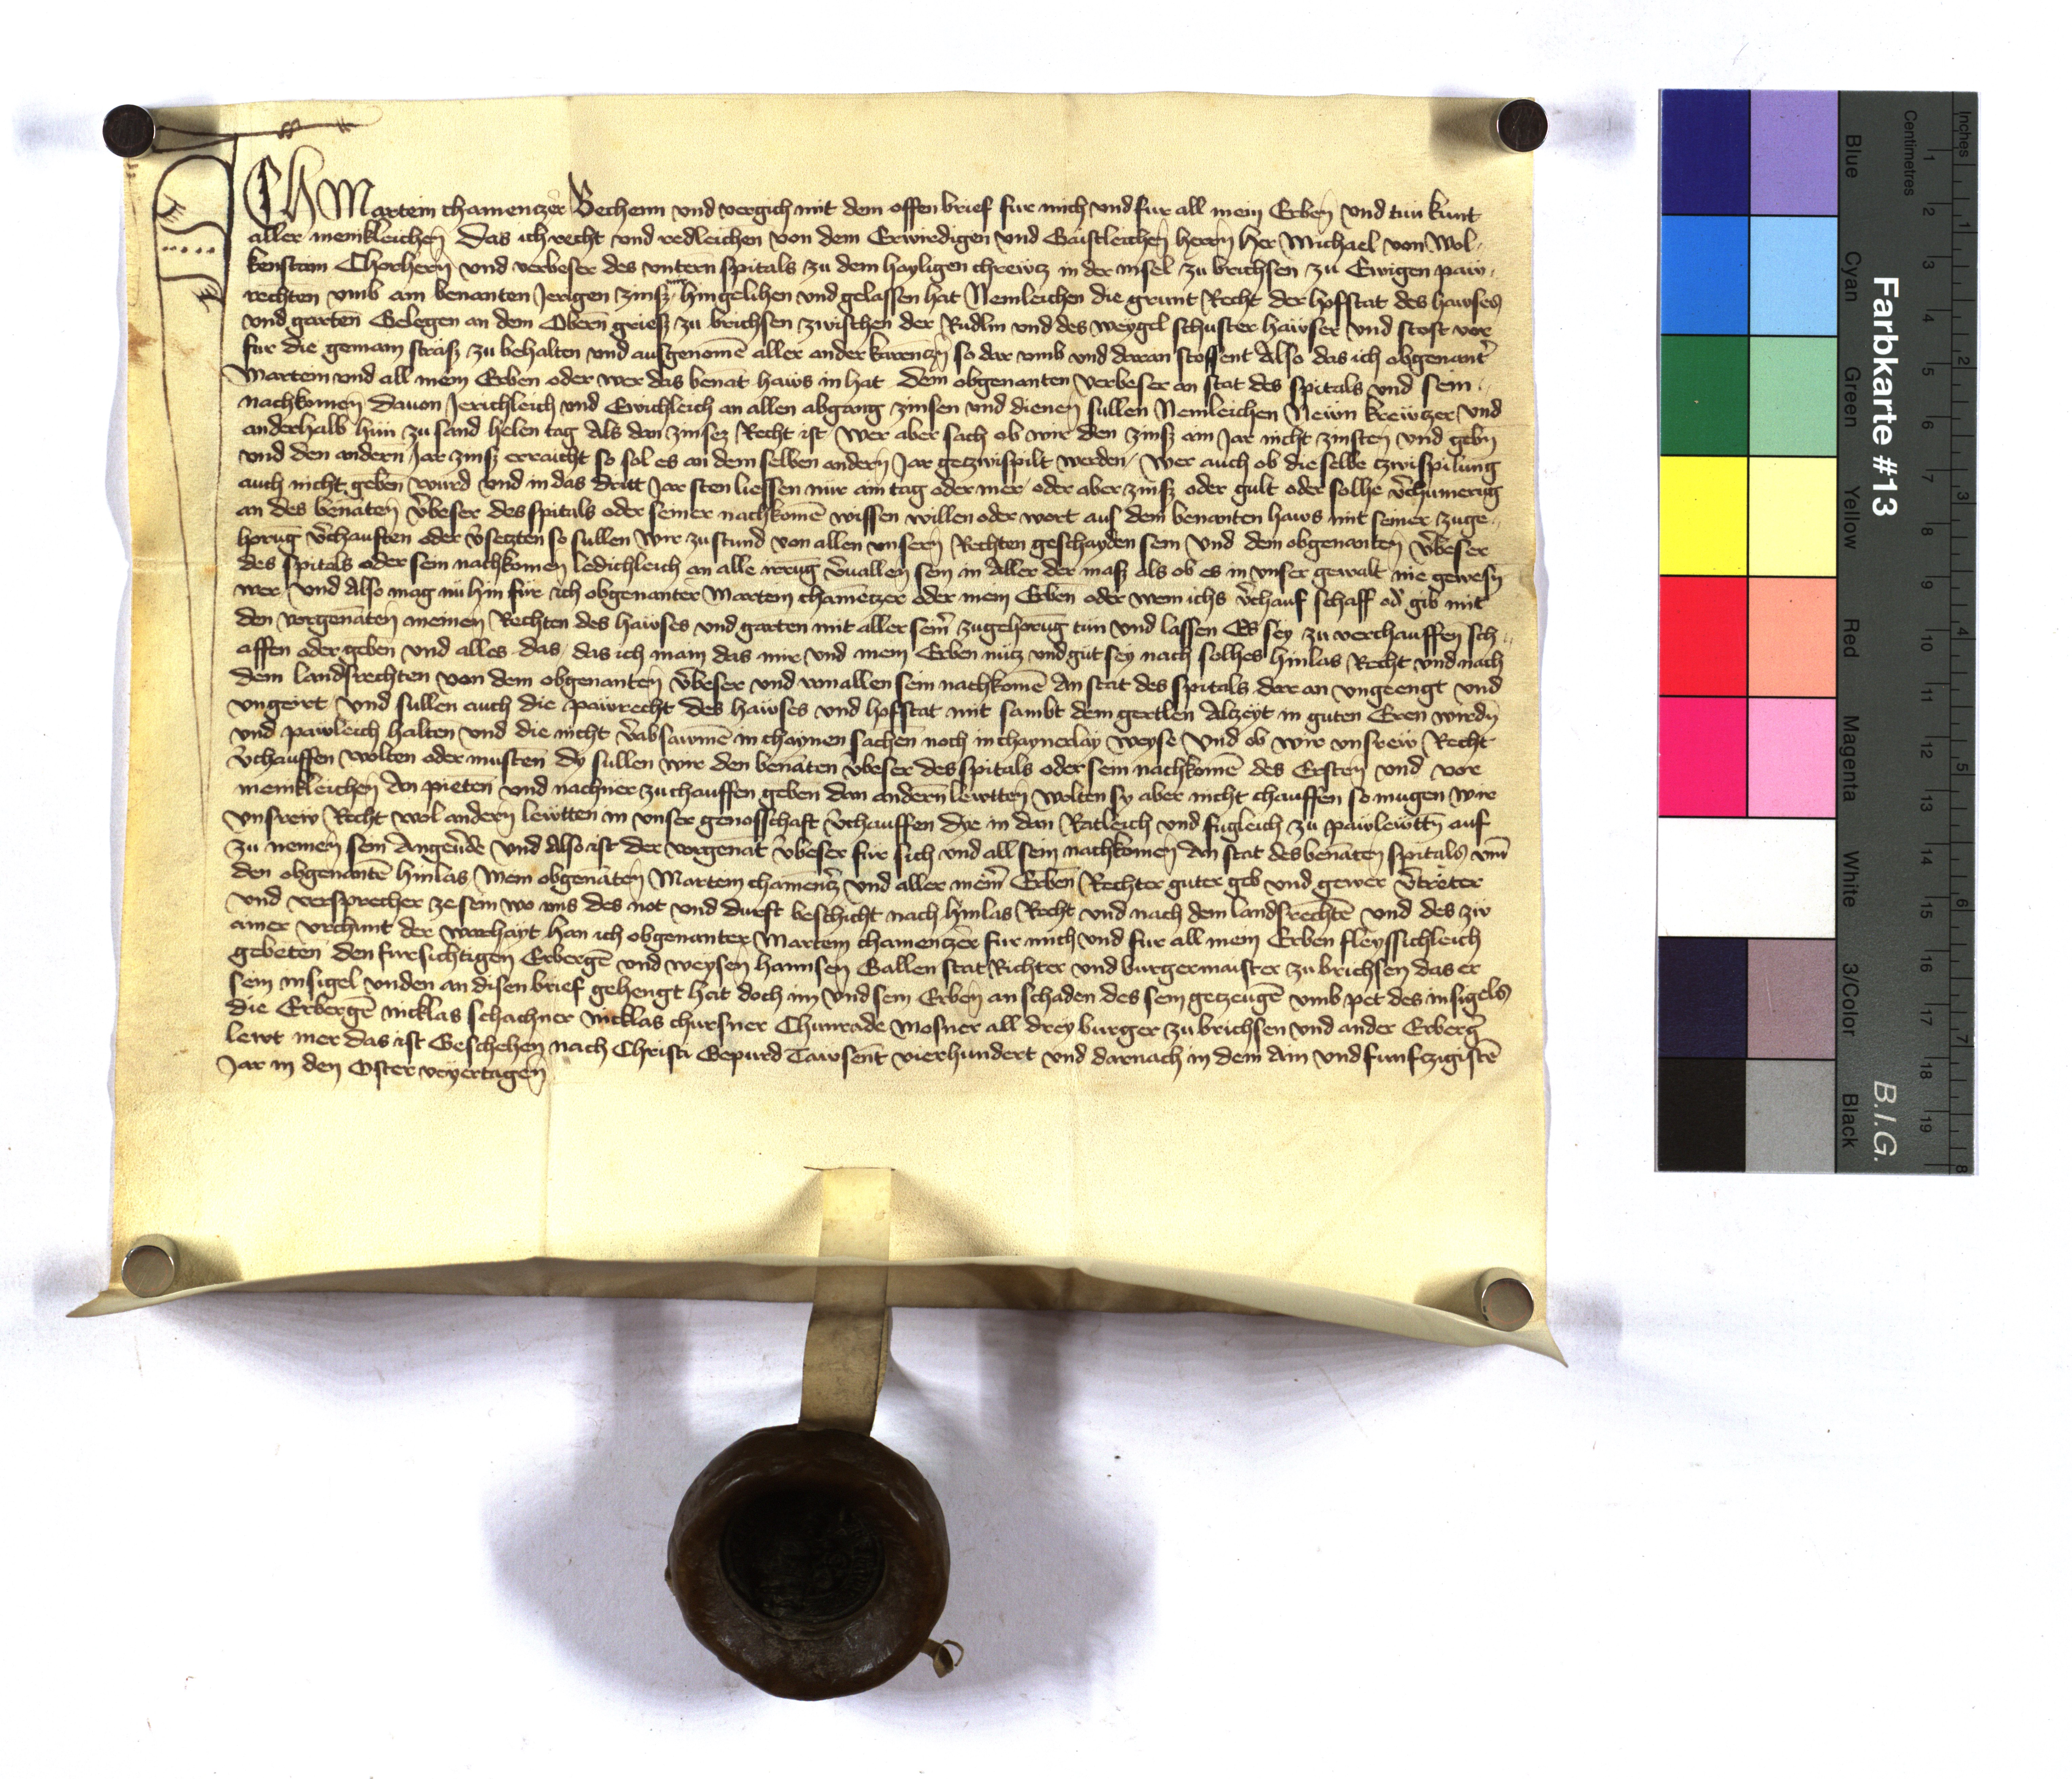 ICH Martein chamenczer Vechenn und vergich mit dem offen brief fur mich und fur all mein Erben und tun kunt
aller menikleichen Das ich recht und redleichen von dem Erwirdigen und Gaistleichen herrn her Michael von Wol-
kenstain Chorhern und verbeser des untern spitals zu dem hayligen chrewcz in der insel zu brichsen zu Ewigen paw-
rechten umb ain benanten Jerigen zinsz hingelihen und gelassen hat Nemleichen die grunt Recht der hofstat des hawses
und garten Gelegen an dem Obern griesz zu brichsen zwischen der Rudlin und des weygel schuster hawser und stost vor
fur die gemain strasz zu behalten und ausgenome aller ander so dar umb und daran stossent Also das ich obgenant
Martein und all mein Erben oder wer das benat haws in hat dem obgenanten verbeser an stat des spitals und sein
nachkomen davon Jerichleich und Ewichleich an allen abgang zinsen und dienen sullen Nemleichen Newn krewczer und
anderhalb hun zu sand helen tag Als dan zinsez Recht ist wer aber sach ob wir den zinsz ain Jar nicht zinsten und gebn
und den andern Jar zinsz erraicht so sol es an dem selben andern Jar getzwispilt werden wer auch ob die selbe tzwispilung
auch nicht geben wurd und in das dritt Jar sten liessen nur ain tag oder mer oder aber zinsz oder gult oder solhe vchumerug
an des benaten vbeser des spitals oder seiner nachkome wissen willen oder wort aus dem benanten haws mit seiner zuge-
horug vchauften oder vsetzten so sullen wir zu stund von allen unsern Rechten geschayden sein und dem obgenanten vbeser
des spitals oder sein nachkomen ledichleich an alle irrug vuallen sein in aller der masz als ob es in unser gewalt nie gewesn
wer und Also mag nu hin fur ich obgenanter Martein chamenczer oder mein Erben oder wem ichs vchauf schaff od gib mit
den vorgenaten meinen Rechten des hawses und garten mit aller sein zugehorug tun und lassen Es sey zu verchauffen sch-
affen oder geben und alles das das ich main das mir und mein Erben nutz und gut sey nach solhes hinlas Recht und nach
dem landsrechten von dem obgenanten vbeser und von allen sein nachkome An stat des spitals dar an ungeengt und
ungeirt und sullen auch die pawrecht des hawses und hofstat mit sambt dem gertlen alzeyt in guten Eren wirdn
und pawleich halten und die nicht vabsawme in chaynen sachen noch in chaynerlay weyse und ob wir unsrew Recht
vchauffen wolten oder musten dy sullen wir den benaten vbeser des spitals oder sein nachkome des Ersten und vor
menikleichen An pieten und nachner zu chauffen geben dan andern lewtten wolten sy aber nicht chauffen so mugen wir
unsrew Recht wol andern lewtten in unser genosschaft vchauffen dye in dan Ratleich und fugleich zu pawlewttn auf
zu nemen sein Angevde und Also ist der vorgenat vbeser fur sich und all sein nachkomen An stat des benaten spitals um
den obgenante hinlas Mein obgenaten Martein chamencz und aller mein Erben Rechter guter geb und gewer vtreter
und versprecher ze sein wo uns des not und durft beschicht nach hinlas Recht und nach dem landsrechte und des zw
ainer urchunt der warhayt han ich obgenanter Martein chamenczer fur mich und fur all mein Erben fleyssichleich
gebeten den fursichtigen Erberge und weysen hannsen Gallen stat Richter und burgermaister zu brichsen das er
sein insigel unden an disen brief gehengt hat doch im und sein Erben an schaden des sein getzeuge umb pet des insigels
die Erberge nicklas schachner nicklas chursner Chunrade Mosner all drey burger zu brichsen und ander Erberg
lewt mer das ist Geschehen nach Christi Gepurd Tawsent vierhundert und darnach in dem Ain und funfczigiste
Jar in den Oster veyertagen
Farbkarte #13
B.I.G.
Inches
Centimetres
1 2 3 4 5 6 7 8 9 10 11 12 13 14 15 16 17 18 19
1 2 3 4 5 6 7 8
Blue
Cyan
Green
Yellow
Red
Magenta
White
3/Color
Black